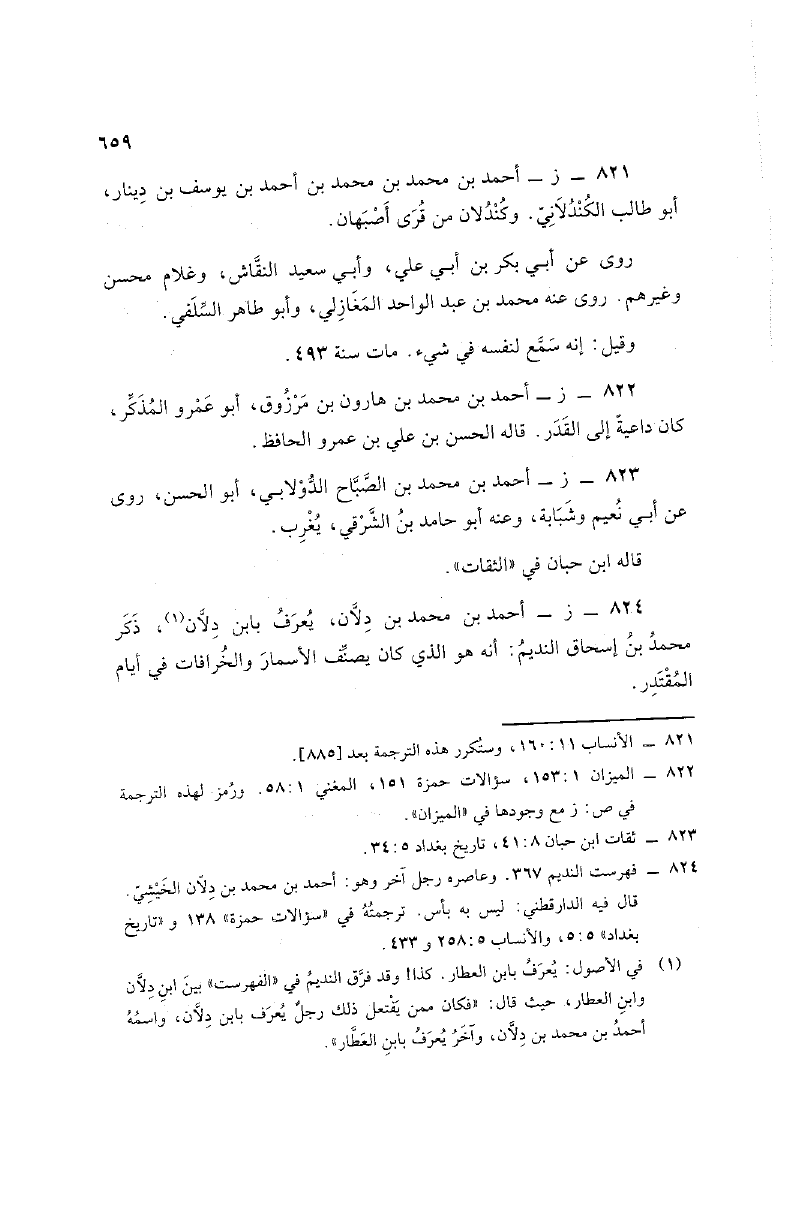 ٦٥٩
٨٢١ ــ ز ــ أحمد بن محمد بن محمد بن أحمد بن يوسف بن دِينار،
أبو طالب الكُنْدُلَانِيّ. وكُنْدُلان من قُرَى أَصْبَهان.
روى عن أبـي بكر بن أبـي علي، وأبـي سعيد النقَّاش، وغلام محسن
وغيرهم. روى عنه محمد بن عبد الواحد المَغَازلي، وأبو طاهر السِّلَفي.
وقيل: إنه سَمَّع لنفسه في شيء. مات سنة ٤٩٣.
٨٢٢ ــ ز ــ أحمد بن محمد بن هارون بن مَرْزُوق، أبو عَمْرو المُذَكِّر،
كان داعيةً إلى القَدَر. قاله الحسن بن علي بن عمرو الحافظ.
٨٢٣ ــ ز ــ أحمد بن محمد بن الصَّبَّاح الدُّوْلابـي، أبو الحسن، روى
عن أبـي نُعيم وشَبَابة، وعنه أبو حامد بنُ الشَّرْقي، يُغْرِب.
قاله ابن حبان في «الثقات».
٨٢٤ ــ ز ــ أحمد بن محمد بن دِلاَّن، يُعرَفُ بابن دِلاَّن(١)، ذَكَر
محمدُ بنُ إسحاق النديمُ: أنه هو الذي كان يصنِّف الأسمارَ والخُرافات في أيام
المُقْتَدِر.
٨٢١ ــ الأنساب ١١: ١٦٠، وستُكرر هذه الترجمة بعد [٨٨٥].
٨٢٢ ــ الميزان ١: ١٥٣، سؤالات حمزة ١٥١، المغني ١: ٥٨. ورُمز لهذه الترجمة
في ص: ز مع وجودها في «الميزان».
٨٢٣ ــ ثقات ابن حبان ٨: ٤١، تاريخ بغداد ٥: ٣٤.
٨٢٤ ــ فهرست النديم ٣٦٧. وعاصره رجل آخر وهو: أحمد بن محمد بن دِلّان الخَيْشِيّ.
قال فيه الدارقطني: ليس به بأس. ترجمتُهُ في «سؤالات حمزة» ١٣٨ و «تاريخ
بغداد» ٥: ٥، والأنساب ٥: ٢٥٨ و ٤٣٣.
(١) في الأصول: يُعرَفُ بابن العطار. كذا! وقد فرَّق النديمُ في «الفهرست» بينَ ابنِ دِلاَّن
وابنِ العطار، حيث قال: «فكان ممن يَفْتعل ذلك رجلٌ يُعرَف بابن دِلاَّن، واسمُهُ
أحمدُ بن محمد بن دِلاَّن، وآخَرُ يُعرَفُ بابنِ العَطَّار».